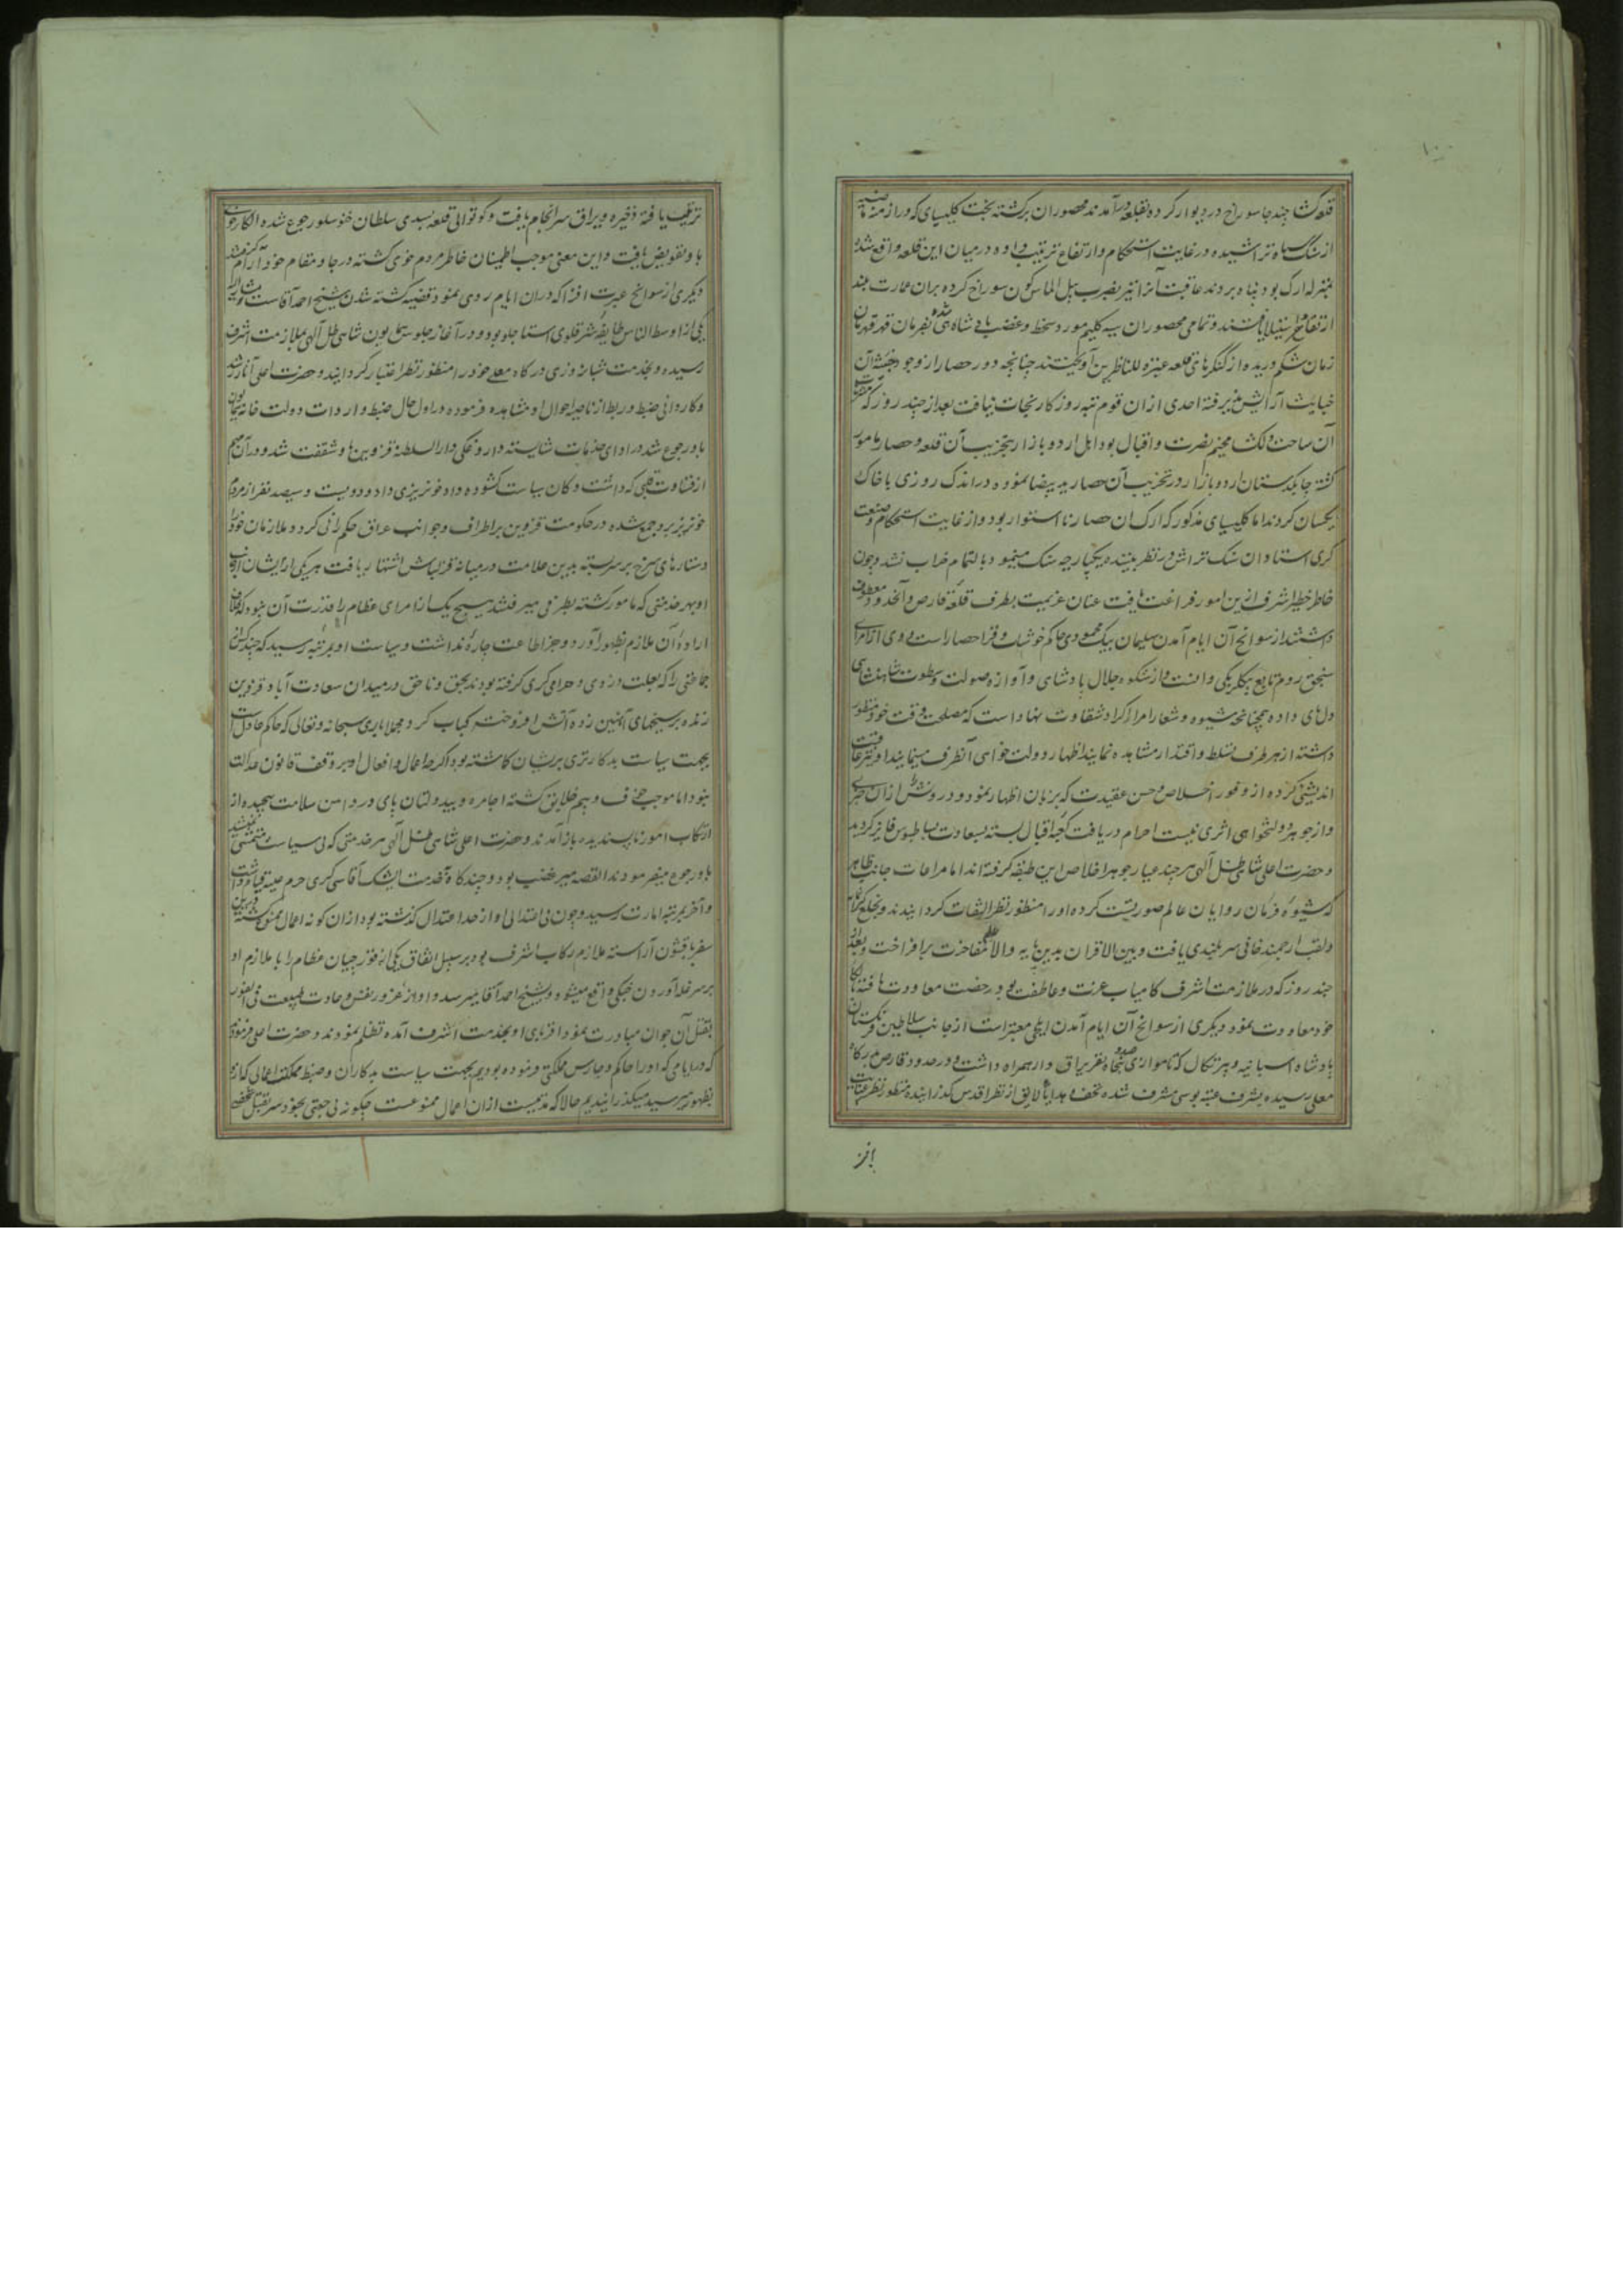 قلعه‌گشا چند جا سوراخ در دیوار کرده بقلعه درآمدند محصوران برگشته بخت کلیسیای که در ازمنه
از سنگ سیاه تراشیده در غایت استحکام و ارتفاع ترتیب داده در میان این قلعه واقع شده
بمنزله ارک بود پناه بردند عاقبت آنرا نیز بضرب بیل الماس‌گون سوراخ کرده بران عمارت
ارتفاع نیز استیلا یافتند و تمامی محصوران سیه کلیم مورد سخط و غضب پادشاهی شده بفرمان قهرمان
زمان شکم دریده از کنگرهای قلعه عبرة للناظرین آویختند چنانچه دور حصار از وجود
خباثت آرایش پذیرفته احدی از ان قوم تبه روزگار نجات نیافت بعد از چند روز که
آن ساحت دلگشا مخیم نصرت و اقبال بود اهل اردو بازار بتخریب آن قلعه و حصار مامور
گشته چابکدستان اردو بازار در تخریب آن حصار ید بیضا نموده در اندک روزی با خاک
یکسان کردند اما کلیسیای مذکور که ارک ان حصار نا استوار بود و از غایت استحکام و صنعت
گری استادان سنک تراش در نظر بیننده یکپارچه سنک مینمود بالتمام خراب نشد و چون
خاطر خطیر اشرف ازین امور فراغت یافت عنان عزیمت بطرف قلعه قارص و آنحدود معطوف
داشتند از سوانح آن ایام آمدن سلیمان بیک محمودی حاکم خوشاب و قراحصار است وی از امرای
سنجق روم تابع بیکلربیکی وانست و از شکوه جلال پادشاهی و آوازه صولت و سطوت شاهنشاهی
دل از جای داده همچنانچه شیوه و شعار امرای اکراد شقاوت نهاد است که مصلحت وقت خود منظور
داشته از هر طرف تسلط و اقتدار مشاهده نمایند اظهار دولت خواهی آنطرف مینمایند او نیز عاقبت
اندیشی کرده از وفور اخلاص و حسن عقیدت که بزبان اظهار نمود و در رونش ازان خبری
و از جوهر دولتخواهی اثری نیست احرام دریافت کعبه اقبال بسته بسعادت بساطبوسی فایز گردید
و حضرت اعلی شاهی ظل آلهی هر چند عیار جوهر اخلاص این طبقه گرفته اند اما مراعات جانب ظاهر
که شیوه فرمان روایان عالم صورتست کرده او را منظور نظر التفات گردانیدند و بخلع
و لقب ارجمند خانی سربلندی یافت و بین الاقران بدین پایه والا علم مفاخرت برافراخت و بعد از
چند روز که در ملازمت اشرف کامیاب عزت و عاطفت بود رخصت معاودت یافته
خود معاودت نمود دیگری از سوانح آن ایام آمدن ایلچی معتبر است از جانب سلاطین فرنگستان
پادشاه اسپانیه و پرتکال که تا موازی صد و پنجاه نفر یراق دار همراه داشت و در حدود قارص بدرگاه
معلی رسیده بشرف عتبه بوسی مشرف شده تحف و هدایا لایق از نظر اقدس گذرانیده منظور نظر عنایت
ترتیب یافته ذخیره و یراق سرانجام یافت و کوتوالی قلعه بسیدی سلطان خنوسلو رجوع شده الکار خوی
باو تفویض یافت و این معنی موجب اطمینان خاطر مردم خوی گشته در جا و مقام خود آرام گرفتند
دیگری از سوانح عبرت افزا که دران ایام روی نمود قضیه کشته شدن شیخ احمد آقاست
یکی از اوسط الناس طایفه شرفلوی استاجلو بود و در آغاز جلوس همایون شاهی ظل آلهی بملازمت اشرف
رسیده و بخدمت شبانه‌روزی درکاه معلی خود را منظور نظر اعتبار گردانید و حضرت اعلی آثار رشد
و کاردانی ضبط و ربط از ناصیه احوال او مشاهده فرموده در اول حال ضبط واردات دولت خانه همایون
باو رجوع شد در ادای خدمات شایسته داروغکی دارالسلطنه قزوین باو شفقت شد و در آن مهم
از قساوت قلبی که داشت دکان سیاست کشوده داد خونریزی داد و دویست و سیصد نفر از مردم
خونریز برو جمع شده در حکومت قزوین بر اطراف و جوانب عراق حکم رانی کرد و ملازمان خود را
دستارهای سرخ بر سر بسته بدین علامت در میانه قزلباش اشتهار یافت هر یکی از ایشان
او بهر خدمتی که مامور گشته بطرفی میرفتند هیچ یک از امرای عظام را قدرت آن نبود که خلاف
اراده آن ملازم بظهور آورد و جز اطاعت چاره نداشت و سیاست او بمرتبه رسید که چند کس
جماعتی را که بعلت دزدی و حرامی‌گری گرفته بودند بحق و ناحق در میدان سعادت آباد قزوین
زنده بر سیخهای آهنین زده آتش افروخته کباب کرد مجملا باری سبحانه و تعالی که حاکم عادلست
بجهت سیاست بدکار تری بریشان گماشته بود اگرچه اعمال و افعال او بر وفق قانون عدالت
نبود اما موجب خوف و بیم خلایق گشته اجامره و بیدولتان پای در دامن سلامت پیچیده از
ارتکاب امور ناپسندیده باز آمدند و حضرت اعلی شاهی ظل آلهی هر خدمتی که بی سیاست متمشی نمیشد
باو رجوع میفرمودند القصه میر غضب بود و چندکاه بخدمت ایشک آقاسی گری حرم علیه قیام داشت
و آخر بمرتبه امارت رسید و چون بی اعتدالی او از حد اعتدال گذشته بود ازان کونه اعمال ممنوع گشته درین
سفر با قشون آراسته ملازم رکاب اشرف بود بر سبیل اتفاق یکی از قورچیان عظام را با ملازم او
بر سر غله آوردن جنکی واقع میشود و شیخ احمد آقا میرسد و او از غرور نفس و حادت طبیعت فی الفور
بقتل آن جوان مبادرت نمود اقربای او بخدمت اشرف آمده تظلم نمودند و حضرت اعلی فرمودند
که در ایامی که او را حاکم و حارس مملکتی فرموده بودیم بجهت سیاست بدکاران و ضبط مملکت اعمالی که ازو
بظهور میرسید میگذرانیدیم حالا که مدتیست ازان اعمال ممنوعست چگونه بی جهتی بخود سر بقتل شخصی